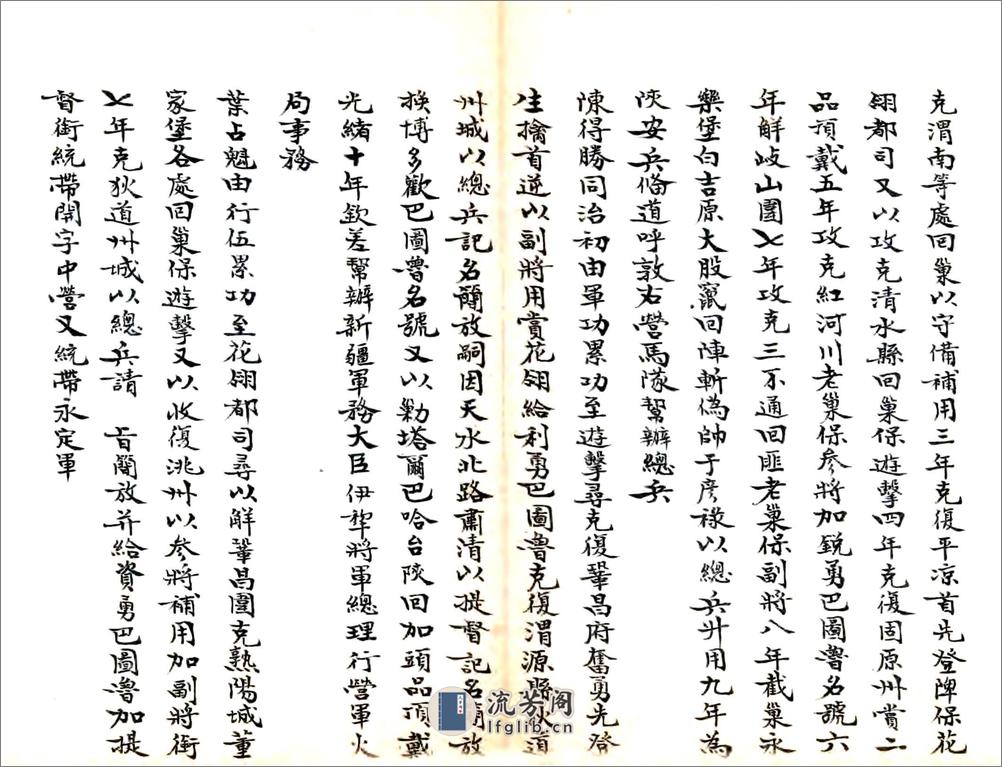 克渭南等處回巢以守備補用三年克復平凉首先登陴保花
翎都司又以攻克清水縣回巢保遊擊四年克復固原州賞二
品頂戴五年攻克紅河川老巢保參將加銳勇巴圖魯名號六
年解岐山圍七年攻克三不通回匪老巢保副將八年截巢永
樂堡白吉原大股竄回陣斬偽帥于彦祿以總兵升用九年為
陝安兵備道呼敦右營馬隊幫辦總兵
陳得勝同治初由軍功累功至遊擊尋克復鞏昌府奮勇先登
生擒首逆以副將用賞花翎給利勇巴圖魯克復渭源縣狄道
州城以總兵記名簡放嗣因天水北路肅清以提督記名簡放
換博多歡巴圖魯名號又以勦塔爾巴哈台陝回加頭品頂戴
光緒十年欽差幫辦新疆軍務大臣伊犂將軍總理行營軍火
局事務
葉占魁由行伍累功至花翎都司尋以解鞏昌圍克熟陽城董
家堡各處回巢保遊擊又以收復洮州以參將補用加副將銜
七年克狄道州城以總兵請　旨簡放并給資勇巴圖魯加提
督銜統帶開字中營又統帶永定軍
流芳阁
lfglib.com